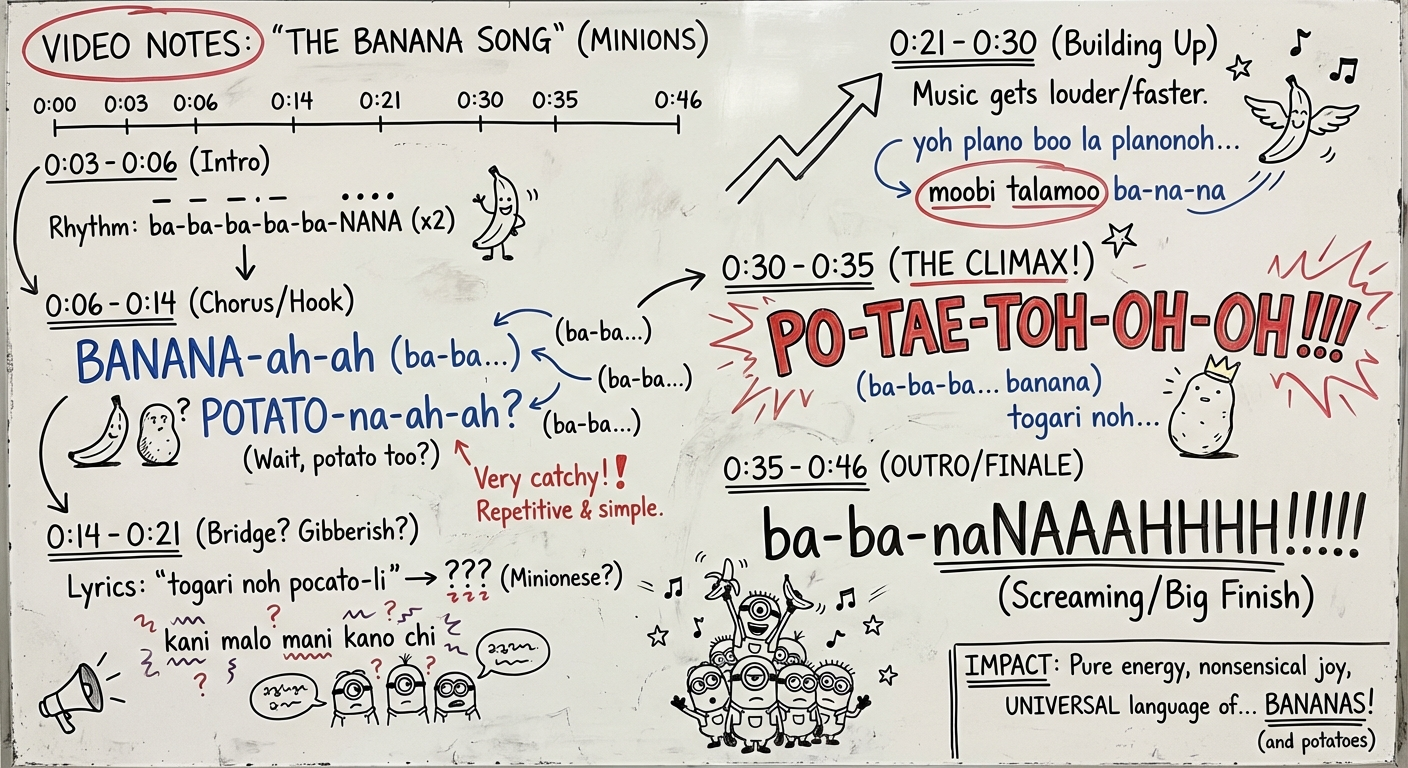 VIDEO NOTES: "THE BANANA SONG" (MINIONS)
0:00 0:03 0:06 0:14 0:21 0:30 0:35 0:46
0:03 - 0:06 (Intro)
Rhythm: ba-ba-ba-ba-ba-NANA (x2)
0:06 - 0:14 (Chorus/Hook)
BANANA-ah-ah (ba-ba...)
(ba-ba...)
(ba-ba...)
POTATO-na-ah-ah?
(ba-ba...)
?
(Wait, potato too?)
Very catchy!!
Repetitive & simple.
0:14 - 0:21 (Bridge? Gibberish?)
Lyrics: "togari noh pocato-li" → ??? (Minionese?)
? ?
kani malo mani kano chi
? ? ?
0:21 - 0:30 (Building Up)
Music gets louder/faster.
yoh plano boo la planonoh...
moobi talamoo ba-na-na
0:30 - 0:35 (THE CLIMAX!)
PO-TAE-TOH-OH-OH!!!
(ba-ba-ba... banana)
togari noh...
0:35 - 0:46 (OUTRO/FINALE)
ba-ba-naNAAAHHHH!!!!!
(Screaming/Big Finish)
IMPACT: Pure energy, nonsensical joy,
UNIVERSAL language of... BANANAS!
(and potatoes)